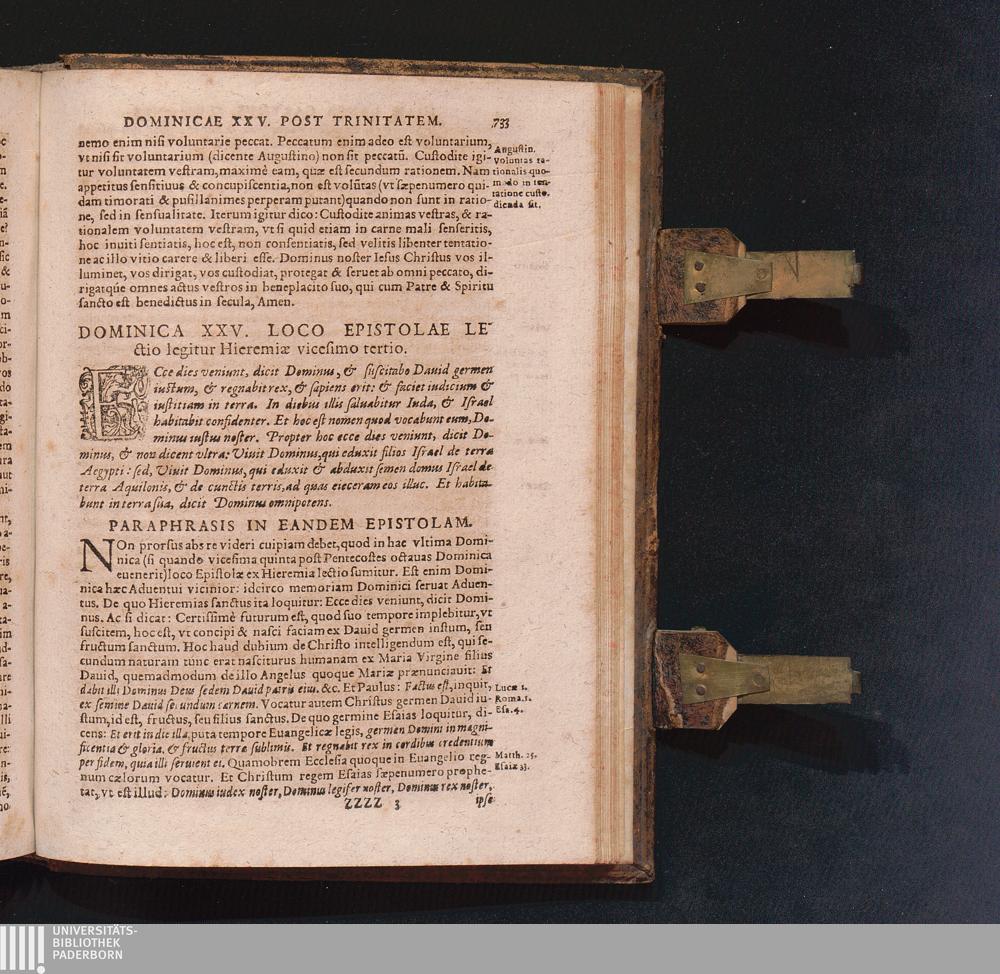 DOMINICAE XXV. POST TRINITATEM. 733
nemo enim nisi voluntarie peccat. Peccatum enim adeo est voluntarium,
vt nisi sit voluntarium (dicente Augustino) non sit peccatũ. Custodite igi-
tur voluntatem vestram, maximè eam, quæ est secundum rationem. Nam
appetitus sensitiuus & concupiscentia, non est volũtas (vt sæpenumero qui-
dam timorati & pusillanimes perperam putant) quando non sunt in ratio-
ne, sed in sensualitate. Iterum igitur dico: Custodite animas vestras, & ra-
tionalem voluntatem vestram, vt si quid etiam in carne mali senseritis,
hoc inuiti sentiatis, hoc est, non consentiatis, sed velitis libenter tentatio-
ne ac illo vitio carere & liberi esse. Dominus noster Iesus Christus vos il-
luminet, vos dirigat, vos custodiat, protegat & seruet ab omni peccato, di-
rigatq́ue omnes actus vestros in beneplacito suo, qui cum Patre & Spiritu
sancto est benedictus in secula, Amen.
Augustin.
Voluntas ra-
tionalis quo-
modo in ten-
tatione custo-
dienda sit.
DOMINICA XXV. LOCO EPISTOLAE LE-
ctio legitur Hieremiæ vicesimo tertio.
ECce dies veniunt, dicit Dominus, & suscitabo Dauid germen
iustum, & regnabit rex, & sapiens erit: & faciet iudicium &
iustitiam in terra. In diebus illis saluabitur Iuda, & Israel
habitabit confidenter. Et hoc est nomen quod vocabunt eum, Do-
minus iustus noster. Propter hoc ecce dies veniunt, dicit Do-
minus, & non dicent vltra: Viuit Dominus, qui eduxit filios Israel de terra
Aegypti: sed, Viuit Dominus, qui eduxit & abduxit semen domus Israel de
terra Aquilonis, & de cunctis terris, ad quas eieceram eos illuc. Et habita-
bunt in terra sua, dicit Dominus omnipotens.
PARAPHRASIS IN EANDEM EPISTOLAM.
NOn prorsus abs re videri cuipiam debet, quod in hac vltima Domi-
nica (si quando vicesima quinta post Pentecostes octauas Dominica
euenerit) loco Epistolæ ex Hieremia lectio sumitur. Est enim Domi-
nica hæc Aduentui vicinior: idcirco memoriam Dominici seruat Aduen-
tus. De quo Hieremias sanctus ita loquitur: Ecce dies veniunt, dicit Domi-
nus. Ac si dicat: Certissimè futurum est, quod suo tempore implebitur, vt
suscitem, hoc est, vt concipi & nasci faciam ex Dauid germen iustum, seu
fructum sanctum. Hoc haud dubium de Christo intelligendum est, qui se-
cundum naturam tunc erat nasciturus humanam ex Maria Virgine filius
Dauid, quemadmodum de illo Angelus quoque Mariæ prænunciauit: Et
dabit illi Dominus Deus sedem Dauid patris eius. &c. Et Paulus: Factus est, inquit,
ex semine Dauid secundum carnem. Vocatur autem Christus germen Dauid iu-
stum, id est, fructus, seu filius sanctus. De quo germine Esaias loquitur, di-
cens: Et erit in die illa, puta tempore Euangelicæ legis, germen Domini in magni-
ficentia & gloria, & fructus terræ sublimis. Et regnabit rex in cordibus credentium
per fidem, quia illi seruient ei. Quamobrem Ecclesia quoque in Euangelio reg-
num cælorum vocatur. Et Christum regem Esaias sæpenumero prophe-
tat, vt est illud: Dominus iudex noster, Dominus legifer noster, Dominus rex noster,
Lucæ 1.
Roma. 1.
Esa. 4.
Matth. 25.
Esaiæ 33.
ZZZZ 3 ipse
UNIVERSITÄTS-
BIBLIOTHEK
PADERBORN